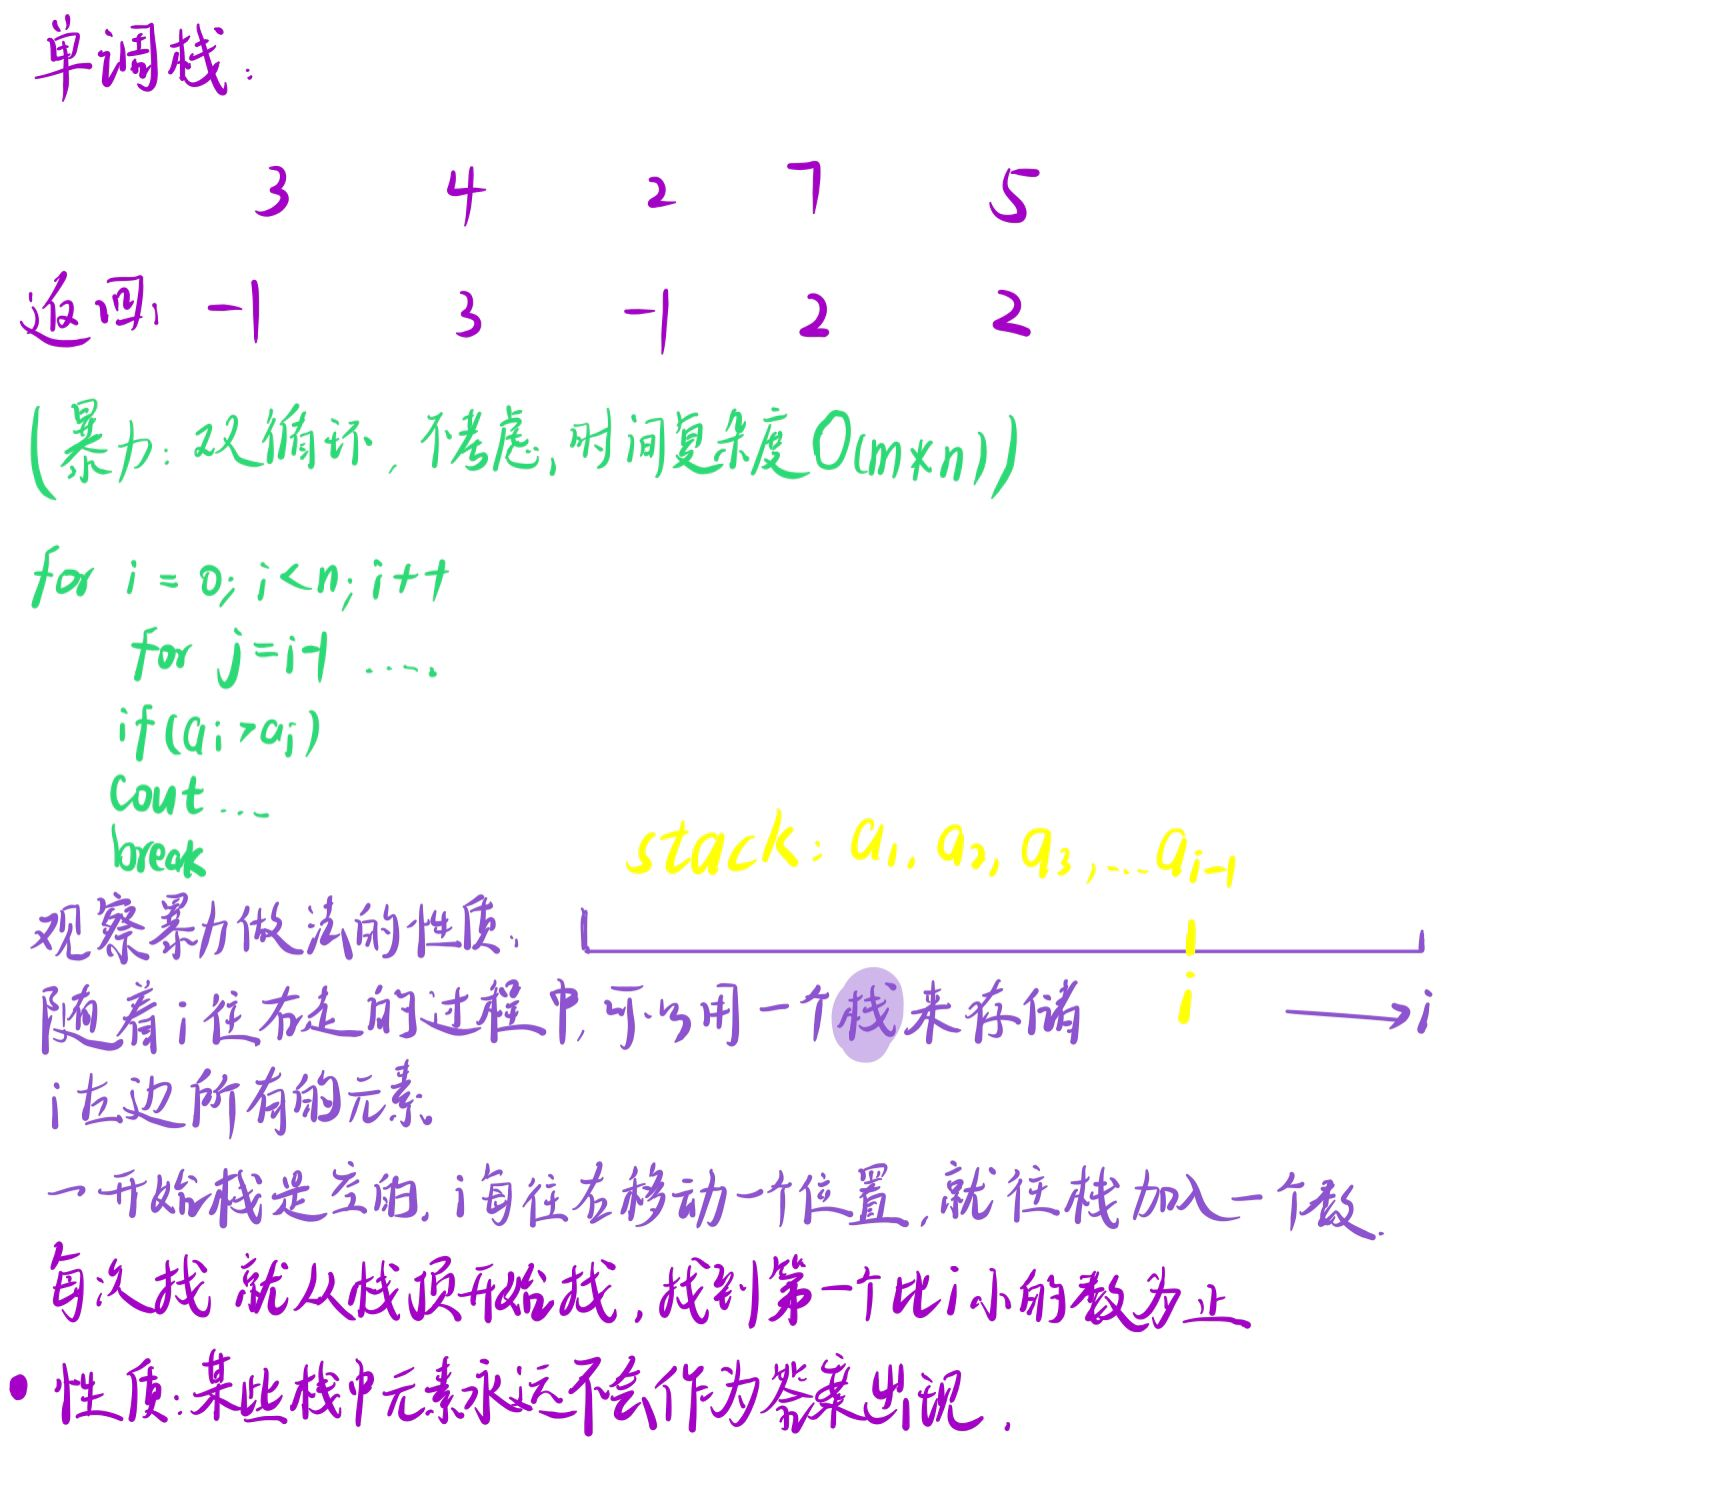 单调栈:
3 4 2 7 5
返回: -1 3 -1 2 2
(暴力: 双循环, 不考虑, 时间复杂度O(m*n))
for i = 0; i<n; i++
for j=i-1 ....
if(ai>aj)
cout ...
break
stack: a1, a2, a3, ... ai-1
观察暴力做法的性质.
i → i
随着i往右走的过程中,可以用一个栈来存储
i左边所有的元素.
一开始栈是空的, i每往右移动一个位置,就往栈加入一个数.
每次找 就从栈顶开始找,找到第一个比i小的数为止
• 性质:某些栈中元素永远不会作为答案出现.